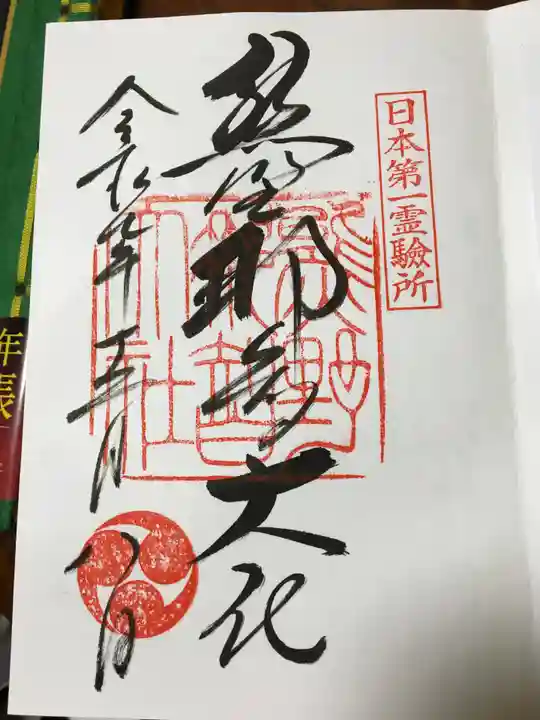 日本第一霊驗所
熊野那智大社
熊野
那智
大社
令和年五月八日
年帳